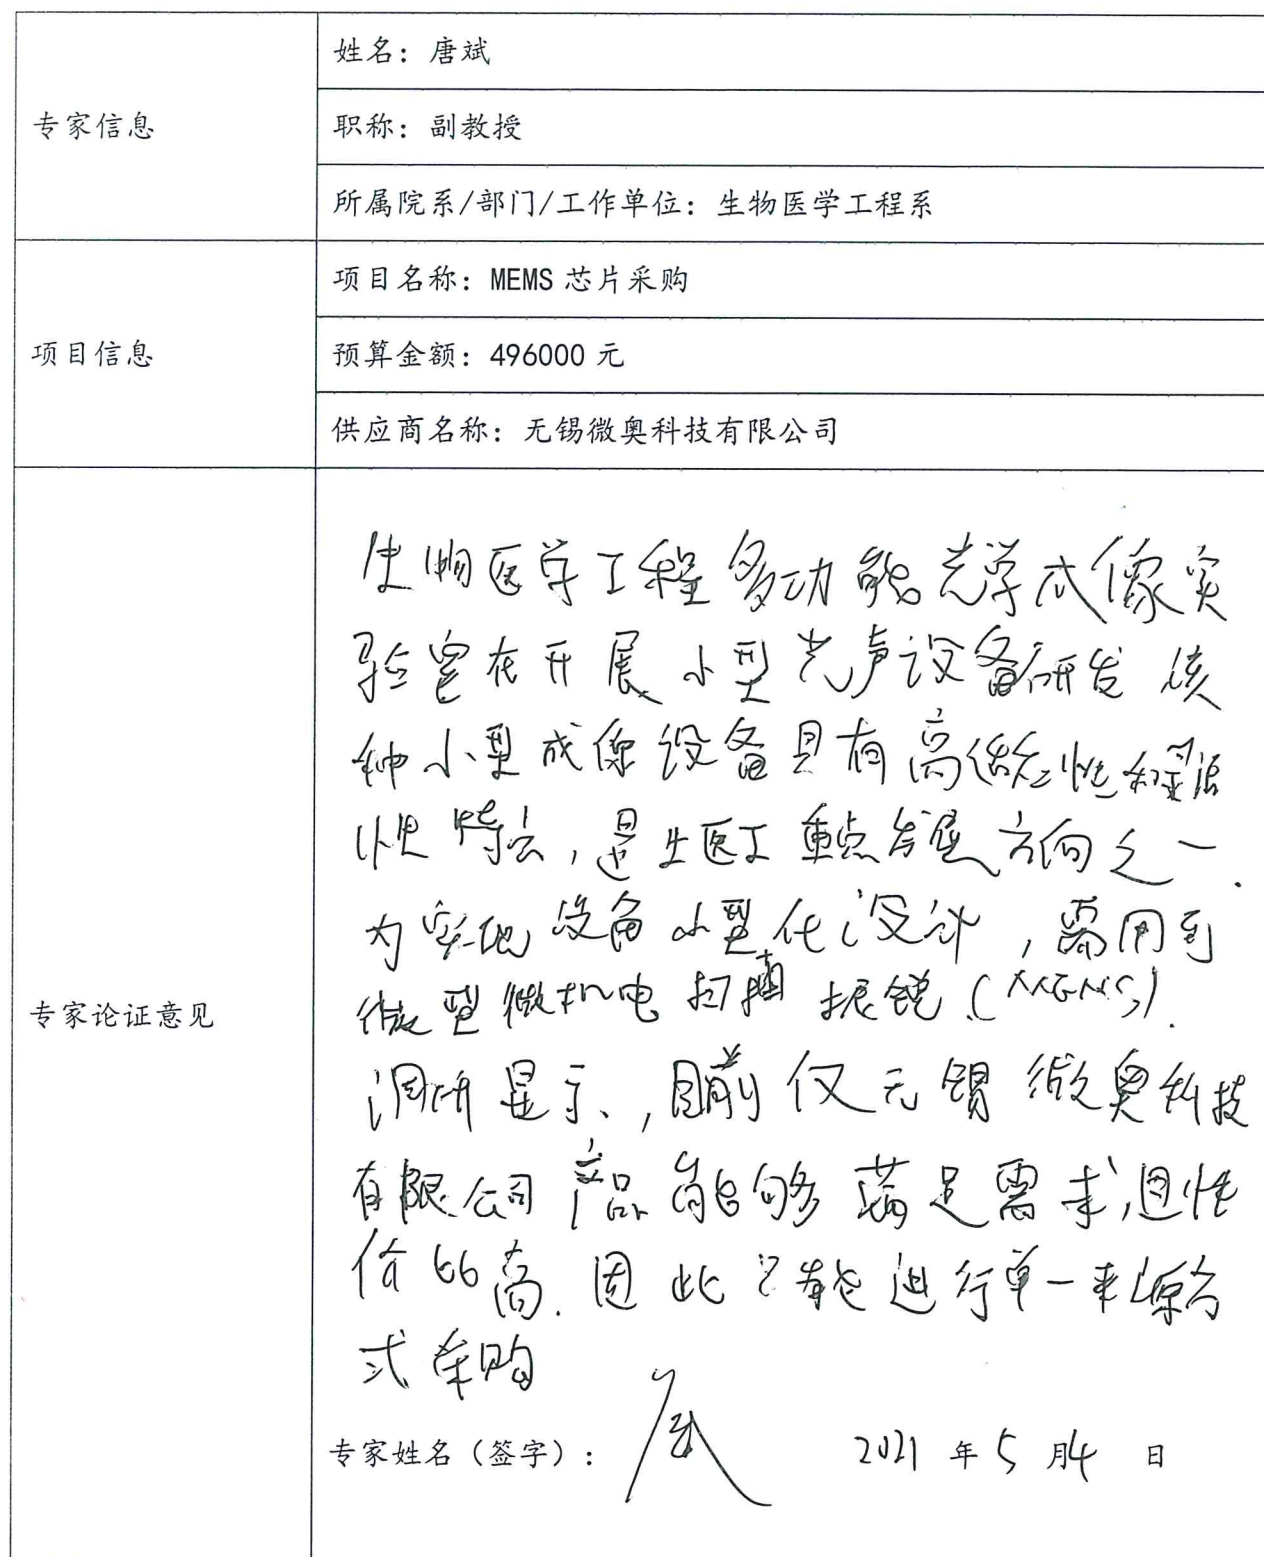 专家信息
姓名：唐斌
职称：副教授
所属院系/部门/工作单位：生物医学工程系
项目信息
项目名称：MEMS 芯片采购
预算金额：496000 元
供应商名称：无锡微奥科技有限公司
专家论证意见
生物医学工程多功能光学成像实
验室在开展小型光声设备研发 该
种小型成像设备具有高 性和灵活
性特点，是生医工重点发展方向之一.
为实现设备小型化设计，需用到
微型微机电扫描振镜(MEMS).
调研显示，目前仅无锡微奥科技
有限公司产品能够满足需求,且性
价比高. 因此只能进行单一来源方
式采购
专家姓名（签字）：
2021 年 5 月 4 日